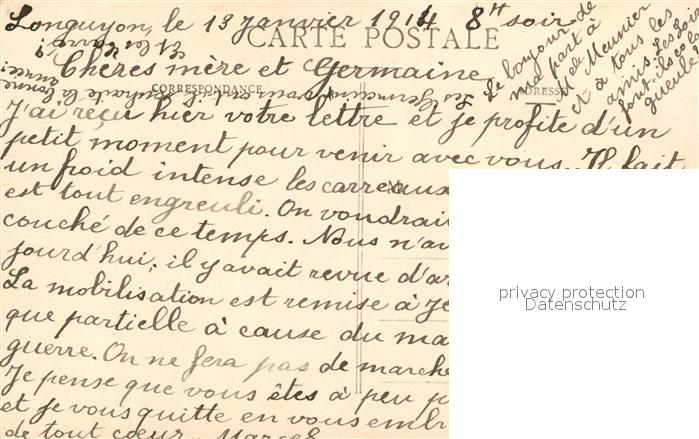 Longuyon, le 13 janvier 1914 8H soir
CARTE POSTALE
Chères mère et Germaine
CORRESPONDANCE
J'ai reçu hier votre lettre et je profite d'un
petit moment pour venir avec vous. Il fait
un froid intense les carreaux
est tout engreuli. On voudrai
couché de ce temps. Nous n'av
jourd'hui, il y avait revue d'ar
La mobilisation est remise à je
que partielle à cause du ma
guerre. On ne fera pas de marche
Je pense que vous êtes à peu p
et je vous quitte en vous embr
de tout cœur. Marcel
Le bonjour de
ma part à
Meunier
et à tous les
amis. Les
font-ils
gueule
privacy protection
Datenschutz